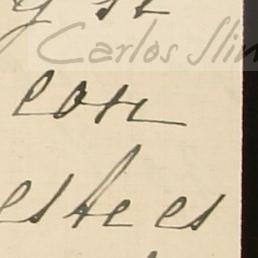 Carlos Slim
con
este es